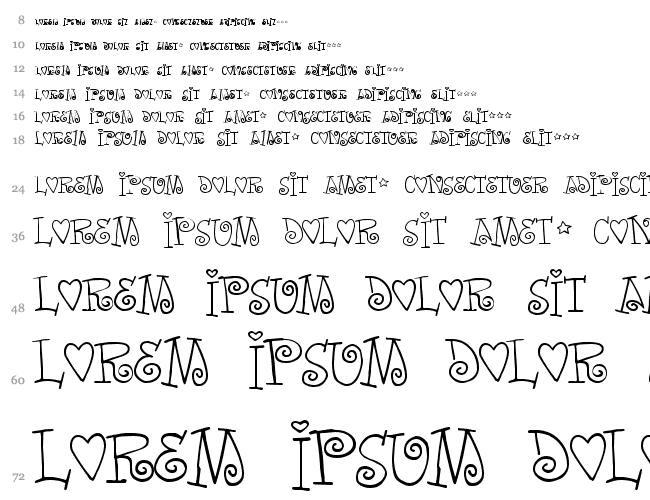 8 LOREM IPSUM DOLOR SIT AMET* CONSECTETUER ADIPISCING ELIT***
10 LOREM IPSUM DOLOR SIT AMET* CONSECTETUER ADIPISCING ELIT***
12 LOREM IPSUM DOLOR SIT AMET* CONSECTETUER ADIPISCING ELIT***
14 LOREM IPSUM DOLOR SIT AMET* CONSECTETUER ADIPISCING ELIT***
16 LOREM IPSUM DOLOR SIT AMET* CONSECTETUER ADIPISCING ELIT***
18 LOREM IPSUM DOLOR SIT AMET* CONSECTETUER ADIPISCING ELIT***
24 LOREM IPSUM DOLOR SIT AMET* CONSECTETUER ADIPISCI
36 LOREM IPSUM DOLOR SIT AMET* CON
48 LOREM IPSUM DOLOR SIT A
60 LOREM IPSUM DOLOR
72 LOREM IPSUM DOL